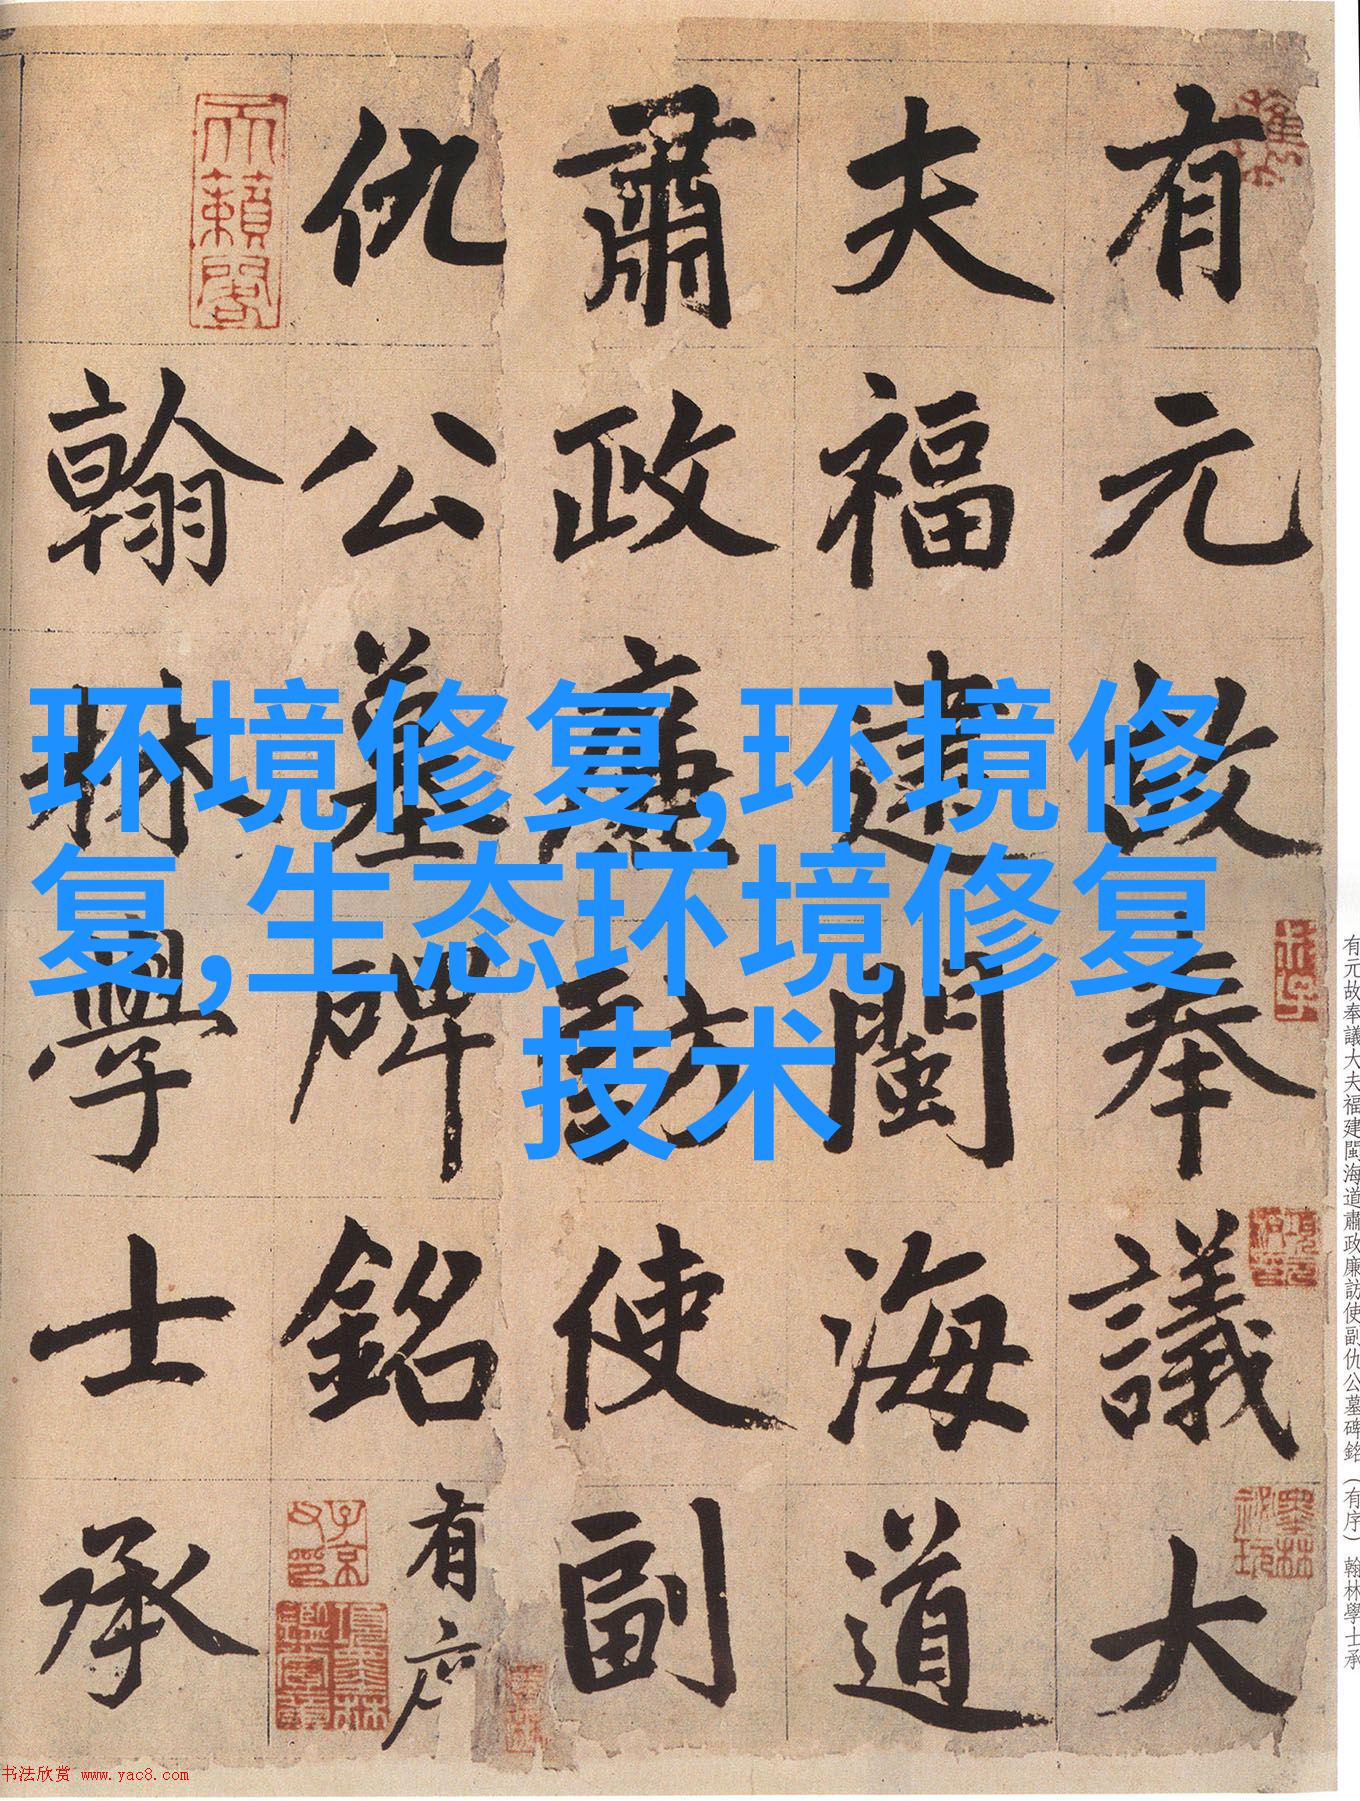 有元故奉議大
夫福建閩海道
肅政廉訪使副
仇公墓碑銘有序
翰林學士承
天籟閣
子京父印
環境修复,环境修
复,生态环境修复
技术
有元故奉議大夫福建閩海道肅政廉訪使副仇公墓碑銘（有序）翰林學士承
书法欣赏 www.yac8.com